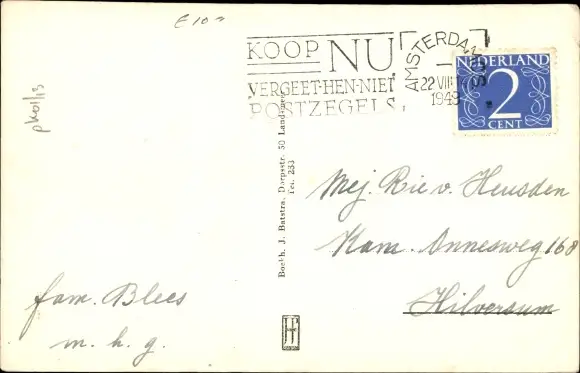 E 10=
KOOP NU
VERGEET-HEN-NIET
POSTZEGELS
AMSTERDAM
22 VIII
1948
NEDERLAND
2
CENT
Boekh. J. Batstra, Dorpsstr. 50 Landsmeer
Tel. 233
Mej. Rie v. Heusden
Kam. Onnesweg 168
Hilversum
fam. Blees
m. h. g.